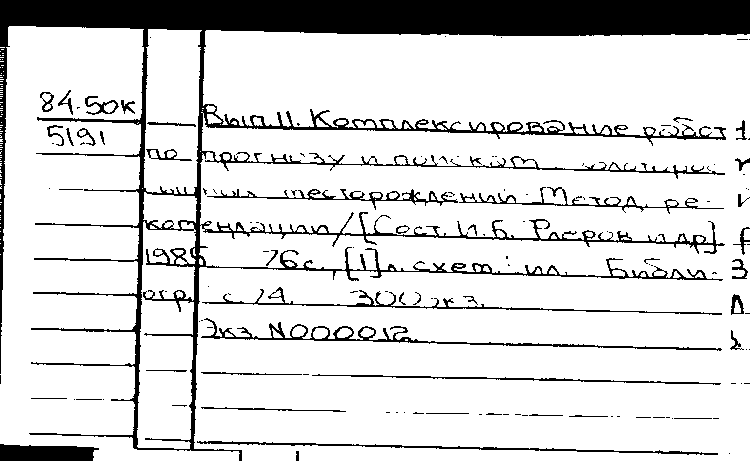 84.50к
5191
Вып. 11. Комплексирование работ
по прогнозу и поискам
месторождений. Метод. ре-
комендации/[Сост. И.Б. Флеров и др].
1985 76с., [1]л. схем.: ил. Библи-
огр. с 74. 300 экз.
Экз. N000012